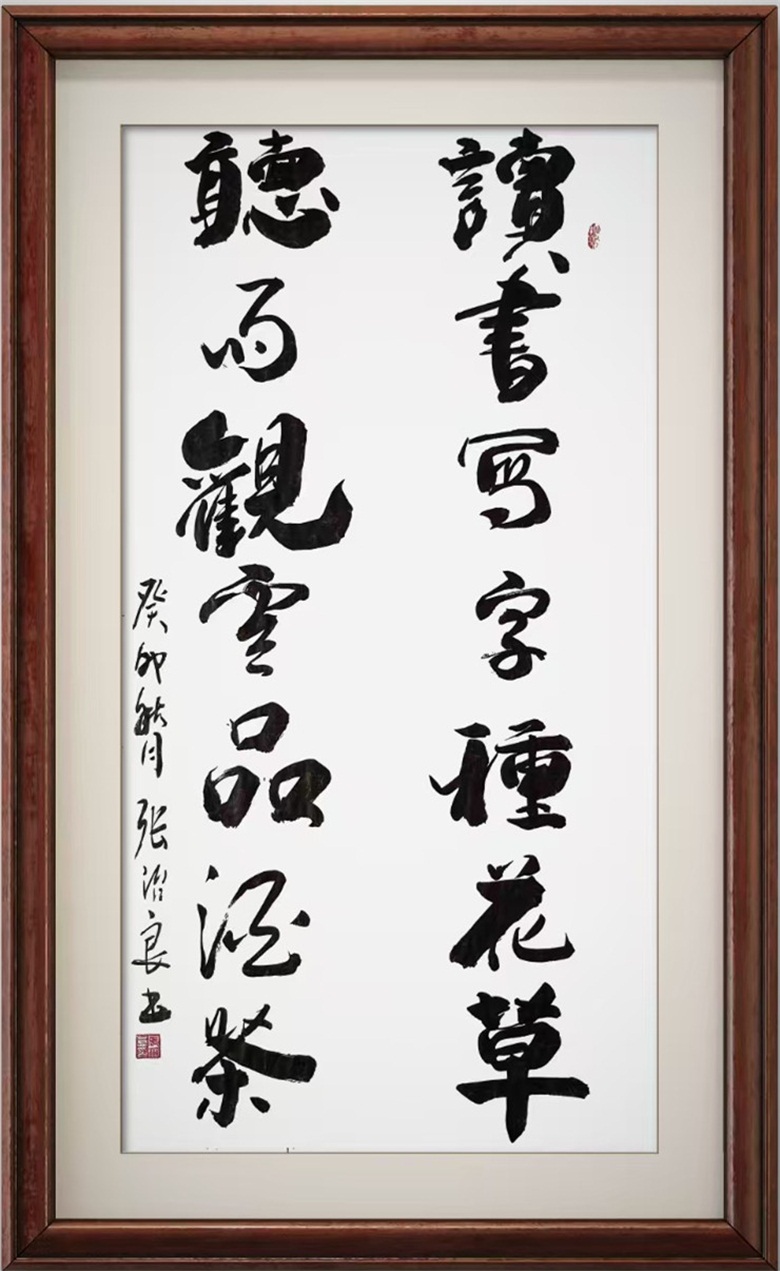 讀書写字種花草
聽雨觀雲品酒茶
癸卯秋月 张治良书